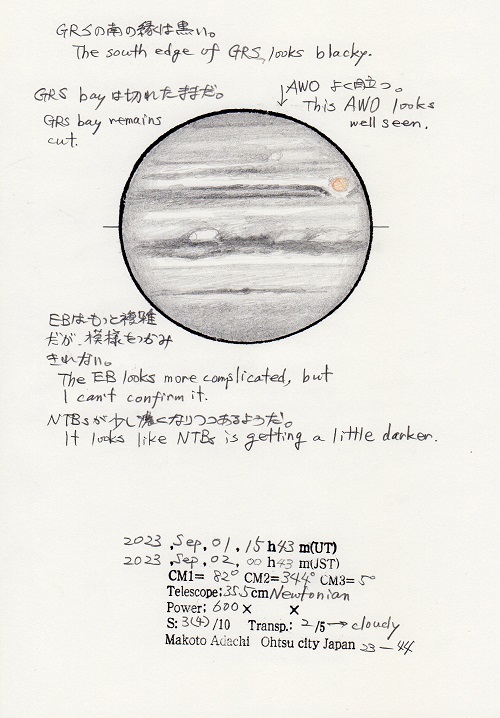 GRSの南の縁は黒い。
The south edge of GRS, looks blacky.
GRS bayは切れたままだ。
GRS bay remains
cut.
AWO よく目立つ。
This AWO looks
well seen.
EBはもっと複雑
だが、模様をつかみ
きれない。
The EB looks more complicated, but
I can't confirm it.
NTBsが少し濃くなりつつあるようだ。
It looks like NTBs is getting a little darker.
2023, Sep, 01, 15 h43 m(UT)
2023, Sep, 02, 00 h43 m(JST)
CM1= 82° CM2= 344° CM3= 5°
Telescope: 35.5cm Newtonian
Power; 600× ×
S: 3(4)/10 Transp.: 2/5→cloudy
Makoto Adachi Ohtsu city Japan 23-44